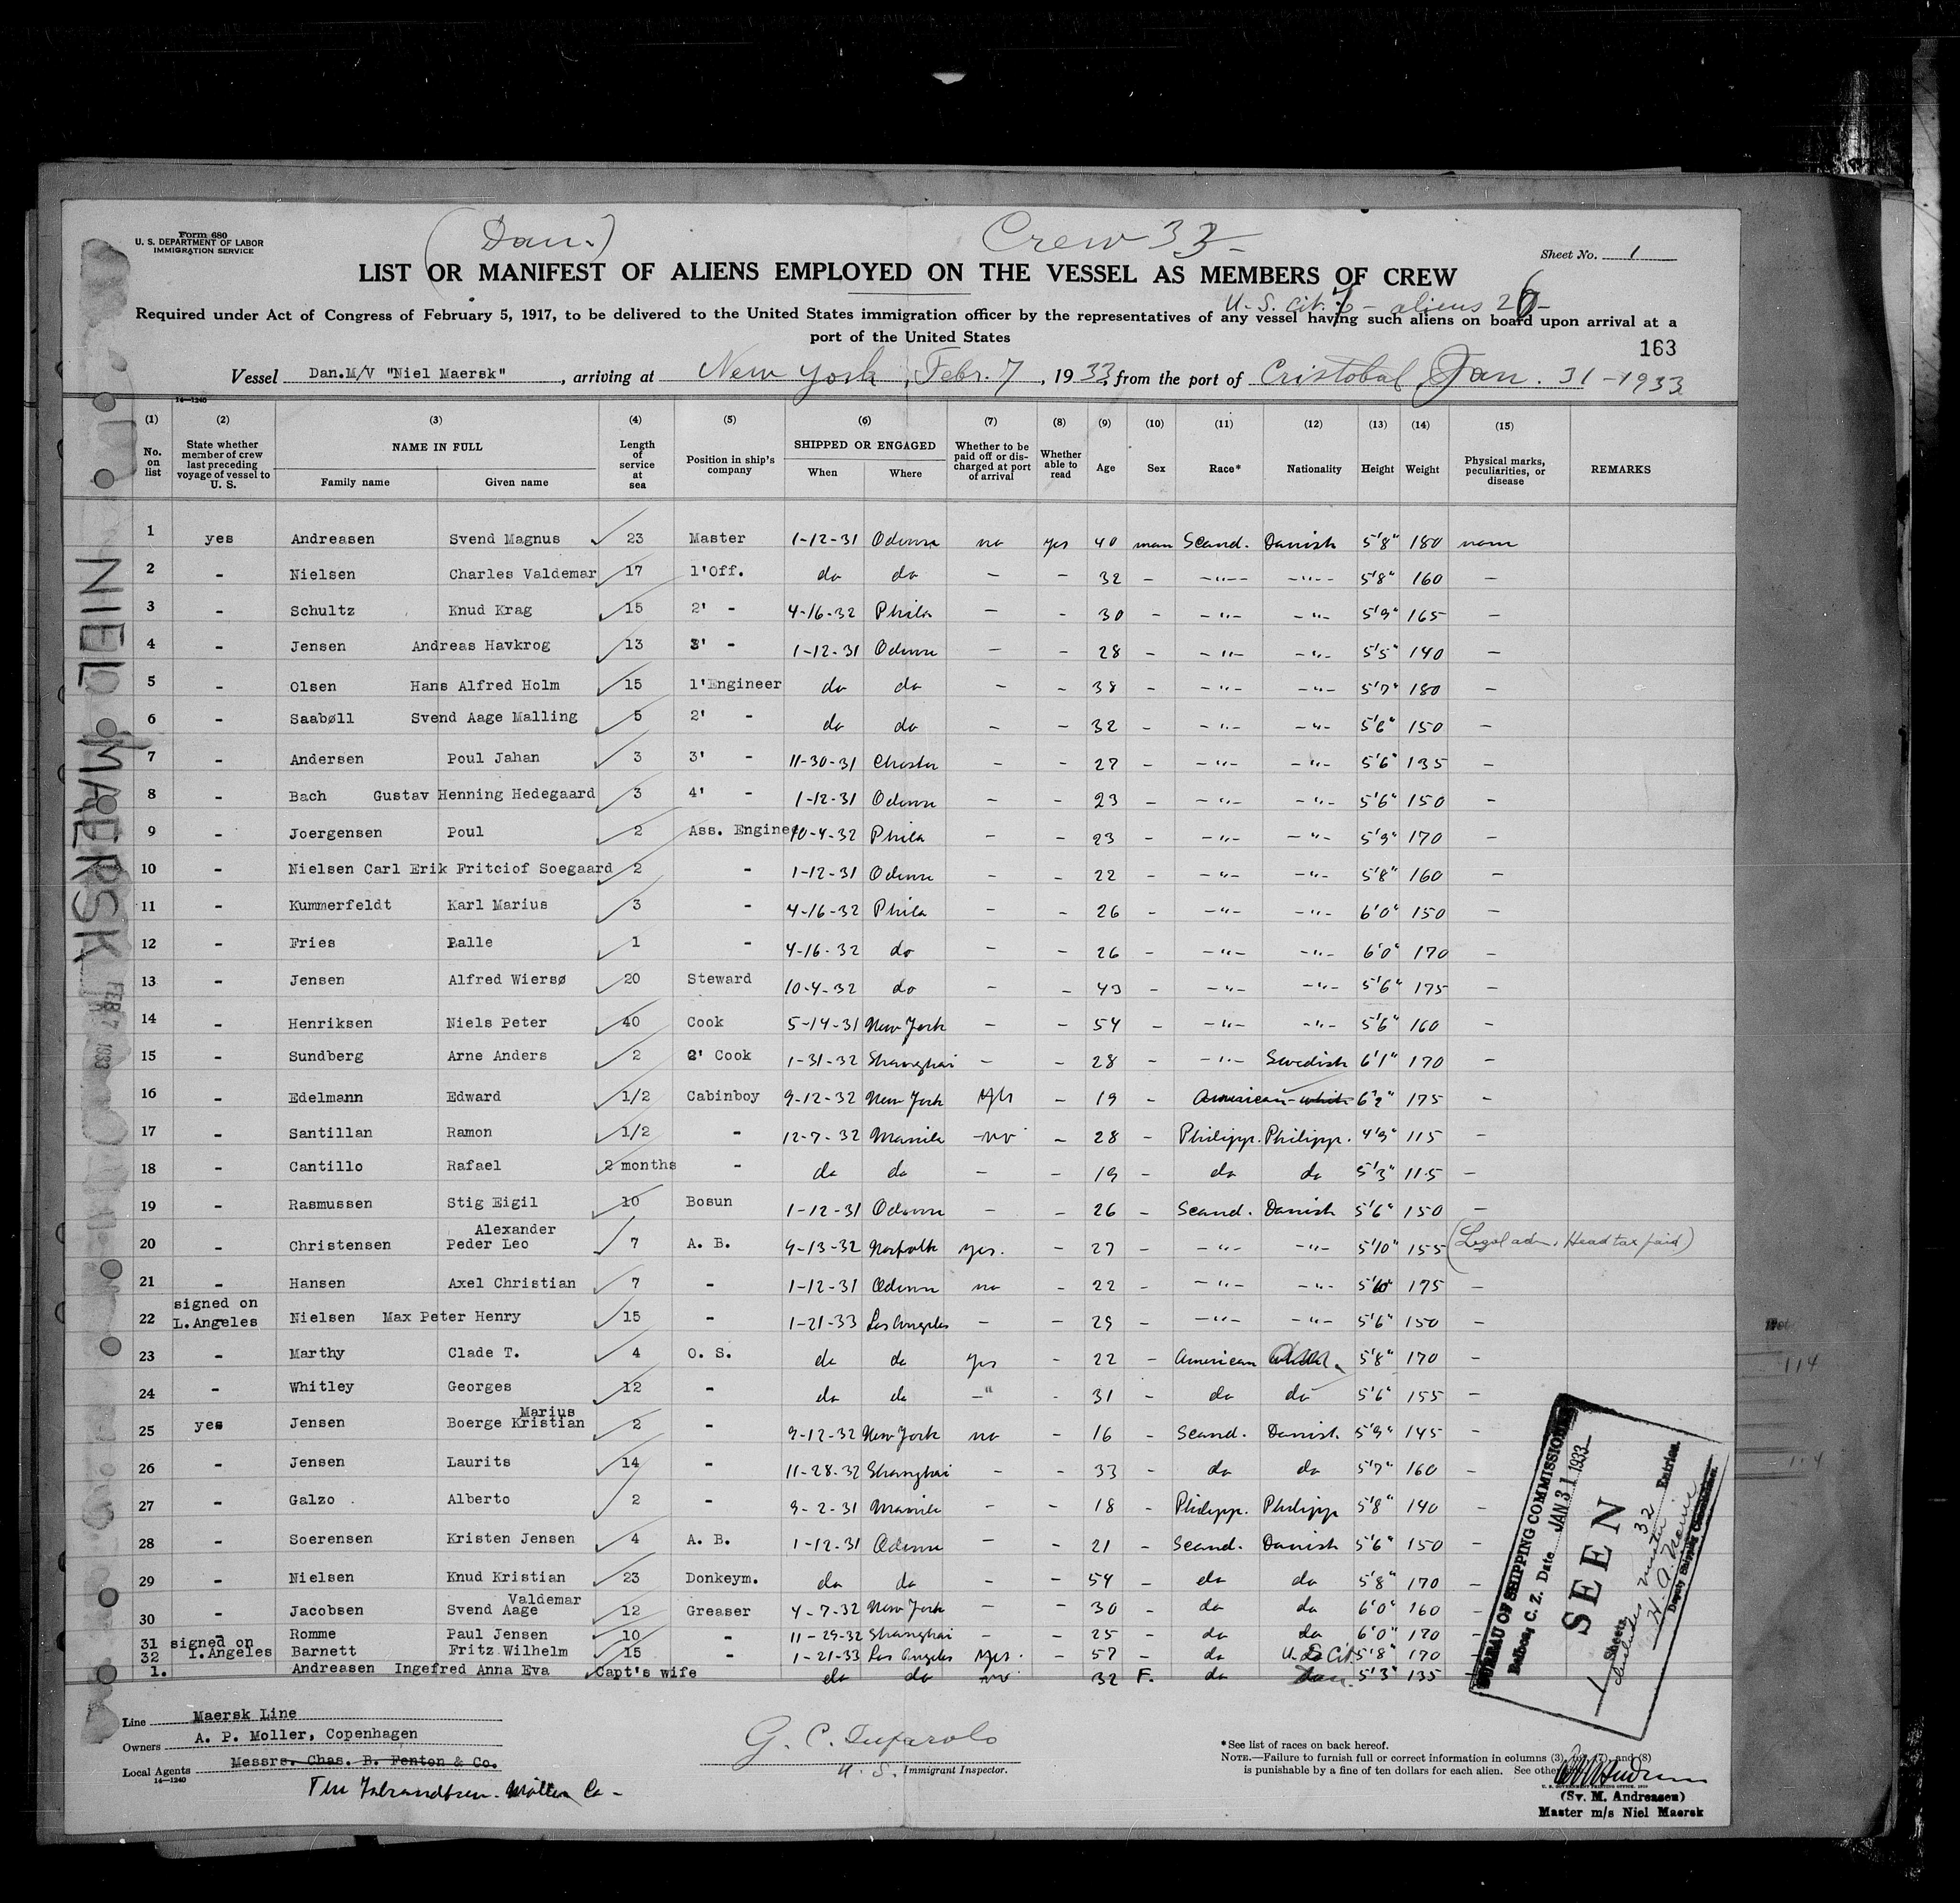 Form 680
U. S. DEPARTMENT OF LABOR
IMMIGRATION SERVICE
(Dan.)
Crew 33-
Sheet No. 1
LIST OR MANIFEST OF ALIENS EMPLOYED ON THE VESSEL AS MEMBERS OF CREW
U. S. Cit. - aliens 26-
Required under Act of Congress of February 5, 1917, to be delivered to the United States immigration officer by the representatives of any vessel having such aliens on board upon arrival at a
port of the United States
163
Vessel Dan.M/V "Niel Maersk", arriving at New York, Febr. 7, 1933, from the port of Cristobal, Jan. 31-1933
14-1240
(1) (2) (3) (4) (5) (6) (7) (8) (9) (10) (11) (12) (13) (14) (15)
No. on list State whether member of crew last preceding voyage of vessel to U. S. NAME IN FULL Family name Given name Length of service at sea Position in ship's company SHIPPED OR ENGAGED When Where Whether to be paid off or discharged at port of arrival Whether able to read Age Sex Race* Nationality Height Weight Physical marks, peculiarities, or disease REMARKS
1 yes Andreasen Svend Magnus 23 Master 1-12-31 Odense no yes 40 man Scand. Danish 5'8" 180 none
2 - Nielsen Charles Valdemar 17 1'Off. do do - - 32 - -"- -"- 5'8" 160 -
3 - Schultz Knud Krag 15 2' - 4-16-32 Phila - - 30 - -"- -"- 5'9" 165 -
4 - Jensen Andreas Havkrog 13 3' - 1-12-31 Odense - - 28 - -"- -"- 5'5" 140 -
5 - Olsen Hans Alfred Holm 15 1'Engineer do do - - 38 - -"- -"- 5'7" 180 -
6 - Saabøll Svend Aage Malling 5 2' - do do - - 32 - -"- -"- 5'6" 150 -
7 - Andersen Poul Jahan 3 3' - 11-30-31 Chester - - 27 - -"- -"- 5'6" 135 -
8 - Bach Gustav Henning Hedegaard 3 4' - 1-12-31 Odense - - 23 - -"- -"- 5'6" 150 -
9 - Joergensen Poul 2 Ass. Engineer 10-4-32 Phila - - 23 - -"- -"- 5'9" 170 -
10 - Nielsen Carl Erik Fritciof Soegaard 2 - 1-12-31 Odense - - 22 - -"- -"- 5'8" 160 -
11 - Kummerfeldt Karl Marius 3 - 4-16-32 Phila - - 26 - -"- -"- 6'0" 150 -
12 - Fries Palle 1 - 4-16-32 do - - 26 - -"- -"- 6'0" 170 -
13 - Jensen Alfred Wiersø 20 Steward 10-4-32 do - - 43 - -"- -"- 5'6" 175 -
14 - Henriksen Niels Peter 40 Cook 5-14-31 New York - - 54 - -"- -"- 5'6" 160 -
15 - Sundberg Arne Anders 2 2' Cook 1-31-32 Shanghai - - 28 - -"- Swedish 6'1" 170 -
16 - Edelmann Edward 1/2 Cabinboy 9-12-32 New York yes - 19 - American white 6'2" 175 -
17 - Santillan Ramon 1/2 - 12-7-32 Manila no - 28 - Philipp. Philipp. 4'9" 115 -
18 - Cantillo Rafael 2 months - do do - - 19 - do do 5'3" 115 -
19 - Rasmussen Stig Eigil 10 Bosun 1-12-31 Odense - - 26 - Scand. Danish 5'6" 150 -
20 - Christensen Alexander Peder Leo 7 A. B. 9-13-32 Norfolk yes. - 27 - -"- -"- 5'10" 155 (Legal adm. Head tax paid)
21 - Hansen Axel Christian 7 - 1-12-31 Odense no - 22 - -"- -"- 175 -
22 signed on L.Angeles Nielsen Max Peter Henry 15 - 1-21-33 Los Angeles - - 29 - -"- -"- 5'6" 150 -
23 - Marthy Clade T. 4 O. S. do do yes - 22 - American 5'8" 170 -
24 - Whitley Georges 12 - do do -"- - 31 - do do 5'6" 155 -
25 yes Jensen Marius Boerge Kristian 2 - 9-12-32 New York no - 16 - Scand. Danish. 5'9" 145 -
26 - Jensen Laurits 14 - 11-28-32 Shanghai - - 33 - do do 5'7" 160 -
27 - Galzo Alberto 2 - 9-2-31 Manila - - 18 - Philipp. Philipp 5'8" 140 -
28 - Soerensen Kristen Jensen 4 A. B. 1-12-31 Odense - - 21 - Scand. Danish 5'6" 150 -
29 - Nielsen Knud Kristian 23 Donkeym. do do - - 54 - do do 5'8" 170 -
30 - Jacobsen Valdemar Svend Aage 12 Greaser 4-7-32 New York - - 30 - do do 6'0" 160 -
31 - Romme Paul Jensen 10 - 11-29-32 Shanghai - - 25 - do do 6'0" 170 -
32 signed on L.Angeles Barnett Fritz Wilhelm 15 - 1-21-33 Los Angeles yes. - 57 - do U.S. Cit. 5'8" 170
1. Andreasen Ingefred Anna Eva Capt's wife do do no 32 F. do Dan. 5'3" 135
NIEL MAERSK
FEB 7 1933
BUREAU OF SHIPPING COMMISSIONER
Balboa, C. Z. Date JAN 31 1933
SEEN
1 Sheets 32 Entries.
includes master
Deputy Shipping Commissioner.
Line Maersk Line
Owners A. P. Moller, Copenhagen
Local Agents Messrs. Chas. B. Fenton & Co.
14-1240
U. S. Immigrant Inspector.
*See list of races on back hereof.
NOTE.—Failure to furnish full or correct information in columns (3), (7), and (8)
is punishable by a fine of ten dollars for each alien. See other
(Sv. M. Andreasen)
Master m/s Niel Maersk
114
114